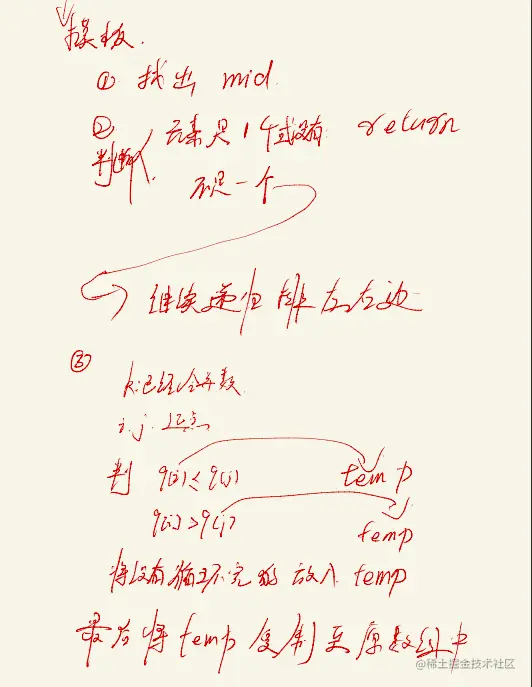 模板.
① 找出 mid
② 判断 元素只1个或没有 return
不只一个
继续递归排左右边
③
k:已经合并数
i.j.起点
判 q[i]≤q[j] temp
q[i]>q[j] temp
将没有循环完的放入 temp
最后将temp复制至原数组中
@稀土掘金技术社区